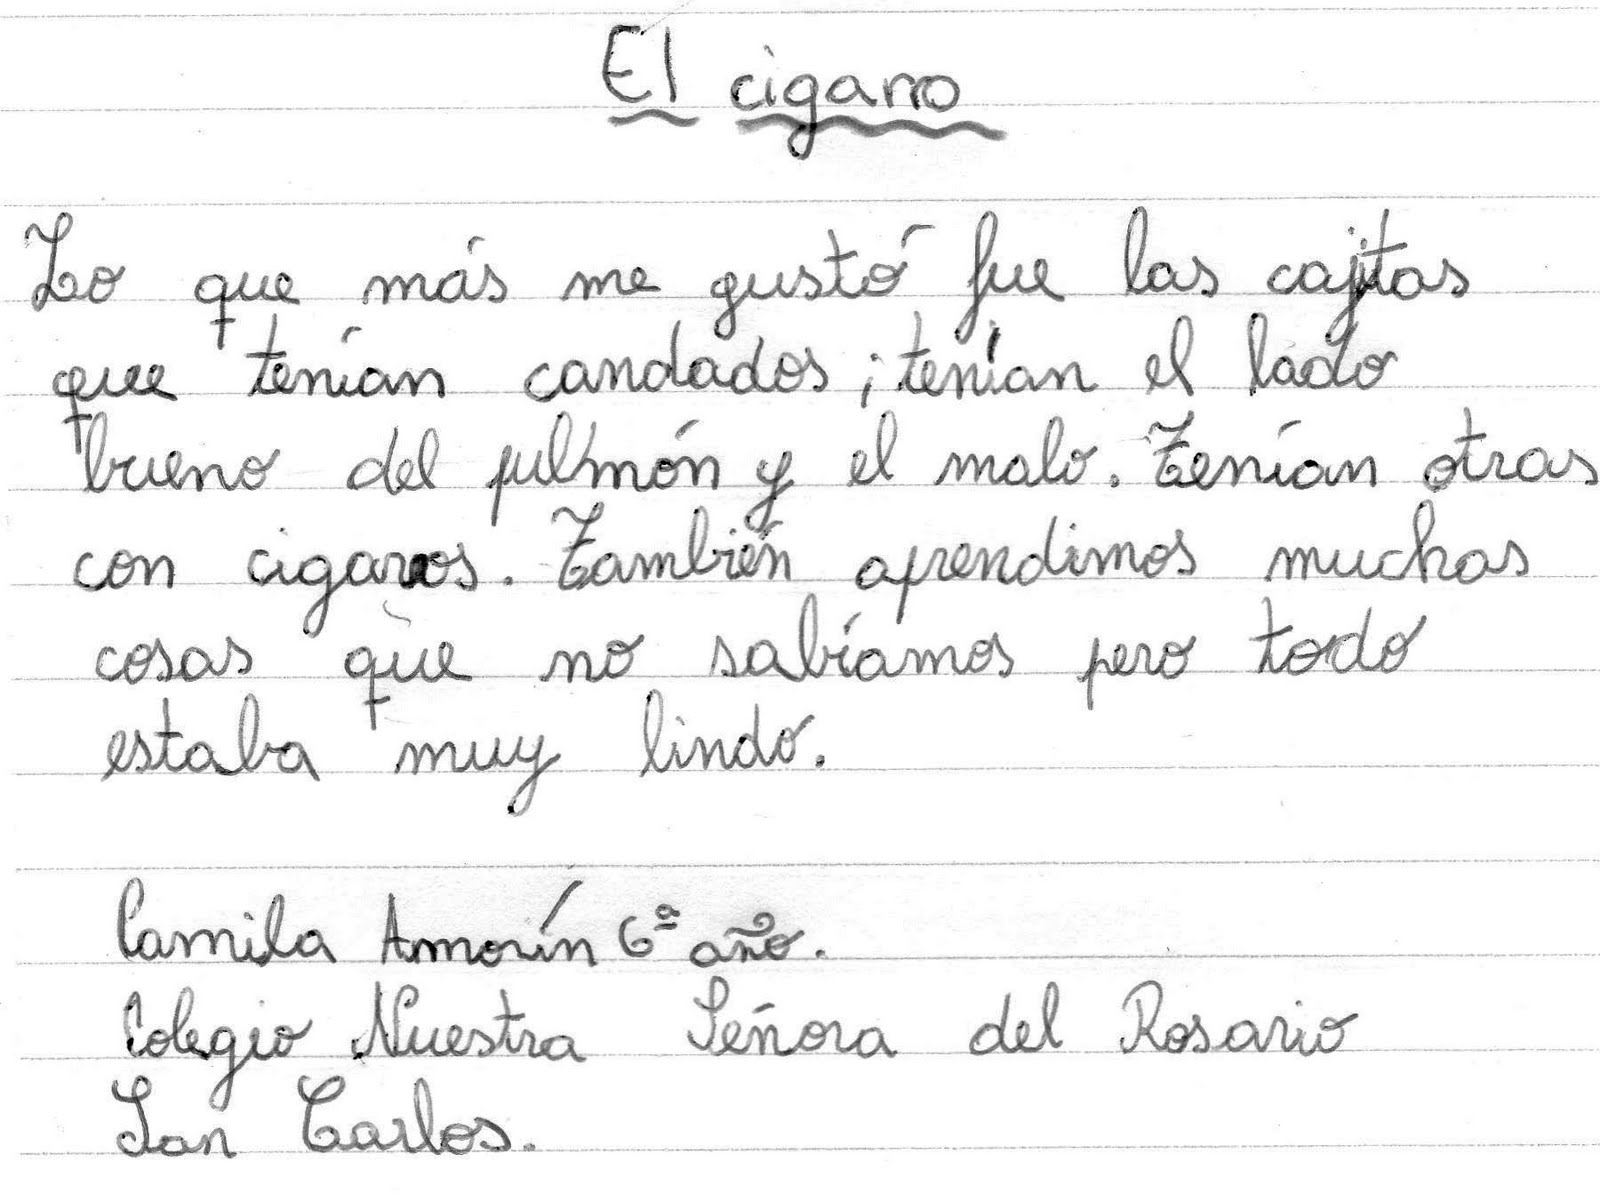 El cigarro
Lo que más me gustó fue las cajitas
que tenían candados; tenían el lado
bueno del pulmón y el malo. Tenían otras
con cigarros. También aprendimos muchas
cosas que no sabíamos pero todo
estaba muy lindo.
Camila Amorín 6ª año.
Colegio Nuestra Señora del Rosario
San Carlos.